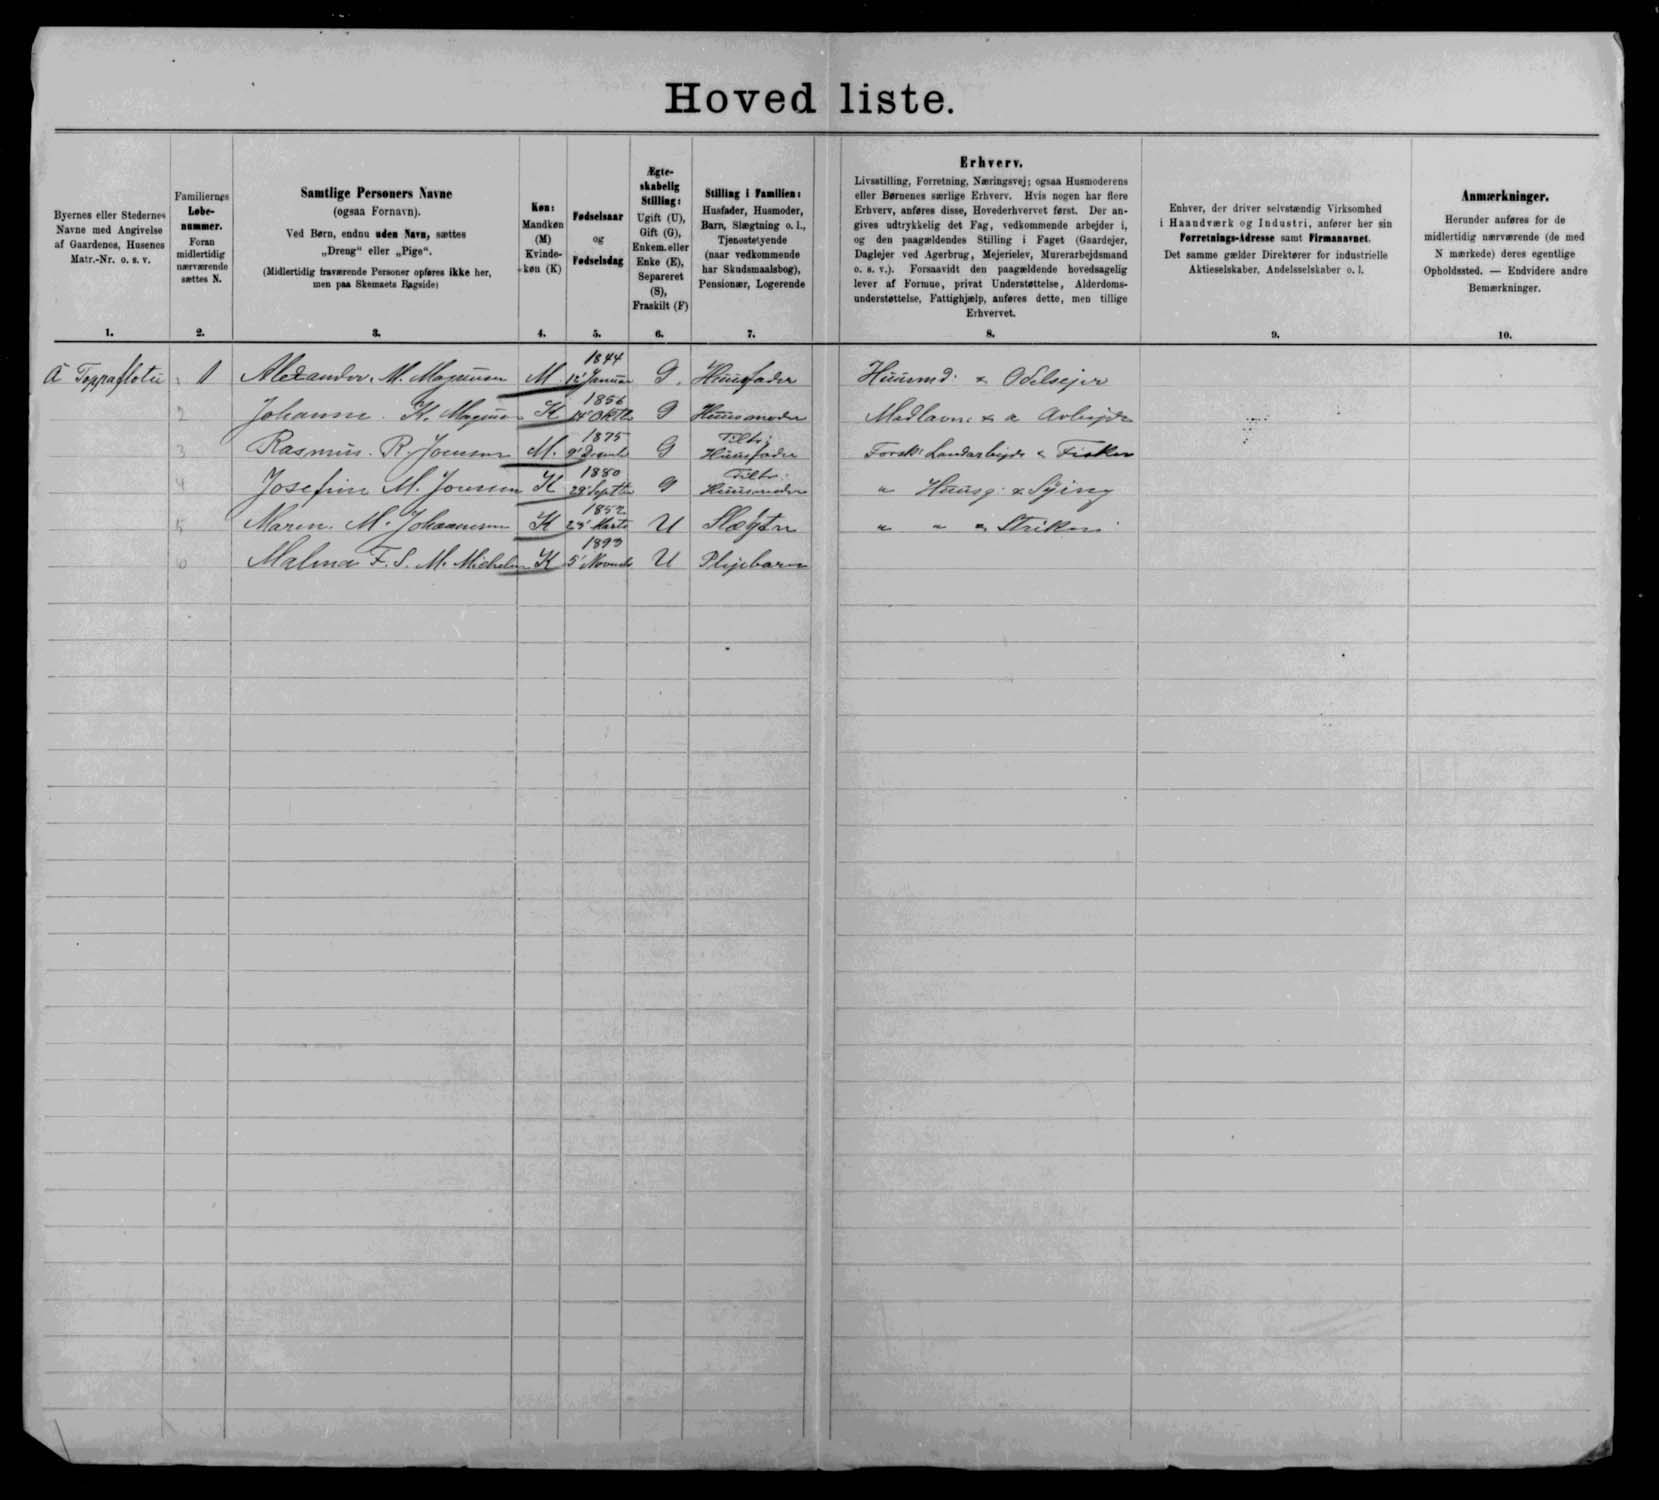 Hovedliste.
Byernes eller Stedernes
Navne med Angivelse
af Gaardenes, Husenes
Matr.-Nr. o. s. v.
1.
Familiernes
Løbe-
nummer.
Foran
midlertidig
nærværende
sættes N.
2.
Samtlige Personers Navne
(ogsaa Fornavn).
Ved Børn, endnu uden Navn, sættes
„Dreng“ eller „Pige“.
(Midlertidig fraværende Personer opføres ikke her,
men paa Skemaets Bagside)
3.
Køn:
Mandkøn
(M)
Kvinde-
køn (K)
4.
Fødselsaar
og
Fødselsdag
5.
Ægte-
skabelig
Stilling:
Ugift (U),
Gift (G),
Enkem. eller
Enke (E),
Separeret
(S),
Fraskilt (F)
6.
Stilling i Familien:
Husfader, Husmoder,
Barn, Slægtning o. l.,
Tjenestetyende
(naar vedkommende
har Skudsmaalsbog),
Pensionær, Logerende
7.
Erhverv.
Livsstilling, Forretning, Næringsvej; ogsaa Husmoderens
eller Børnenes særlige Erhverv. Hvis nogen har flere
Erhverv, anføres disse, Hovederhvervet først. Der an-
gives udtrykkelig det Fag, vedkommende arbejder i,
og den paagældendes Stilling i Faget (Gaardejer,
Daglejer ved Agerbrug, Mejerielev, Murerarbejdsmand
o. s. v.). Forsaavidt den paagældende hovedsagelig
lever af Formue, privat Understøttelse, Alderdoms-
understøttelse, Fattighjælp, anføres dette, men tillige
Erhvervet.
8.
Enhver, der driver selvstændig Virksomhed
i Haandværk og Industri, anfører her sin
Forretnings-Adresse samt Firmanavnet.
Det samme gælder Direktører for industrielle
Aktieselskaber, Andelsselskaber o. l.
9.
Anmærkninger.
Herunder anføres for de
midlertidig nærværende (de med
N mærkede) deres egentlige
Opholdssted. — Endvidere andre
Bemærkninger.
10.
1 Alexander. M. Magnusen M 1844 12' Januar G. Huusfader Huusmd: & Odelsejer
2 Johanne. K. Magnusen K 1856 14' Oktb G Huusmoder Madlavn: & a Arbejde
3 Rasmus. R. Joensen M. 1875 9' G Huusfader Forsk: Landarbejde & Fisker
4 Josefine M. Joensen K 1880 28' Septbr G Huusmoder „ Huusg: & Sying
5 Maren. M. Johannesen K 1852 Marts U Slægtn „ „ &
6 Malma F. S. M. Michelsen K 5' Novemb U Plejebarn